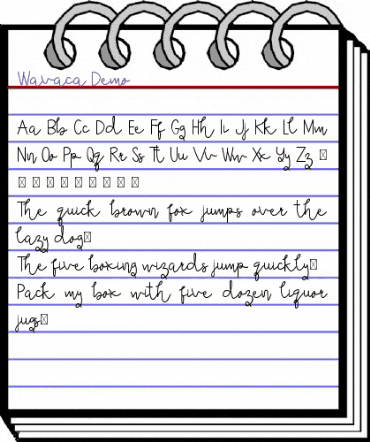 Wavaca Demo
Aa Bb Cc Dd Ee Ff Gg Hh Ii Jj Kk Ll Mm
Nn Oo Pp Qq Rr Ss Tt Uu Vv Ww Xx Yy Zz □
□ □ □ □ □ □ □ □ □
The quick brown fox jumps over the
lazy dog□
The five boxing wizards jump quickly□
Pack my box with five dozen liquor
jugs□